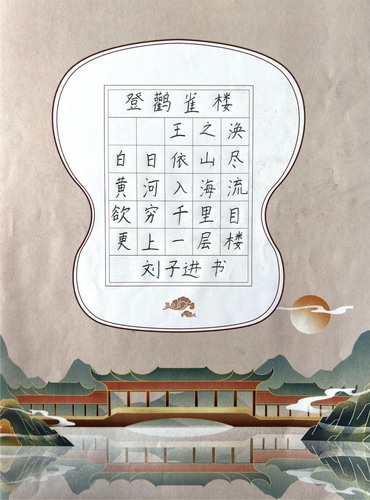 登鹳雀楼
王之涣
白日依山尽
黄河入海流
欲穷千里目
更上一层楼
刘子进书